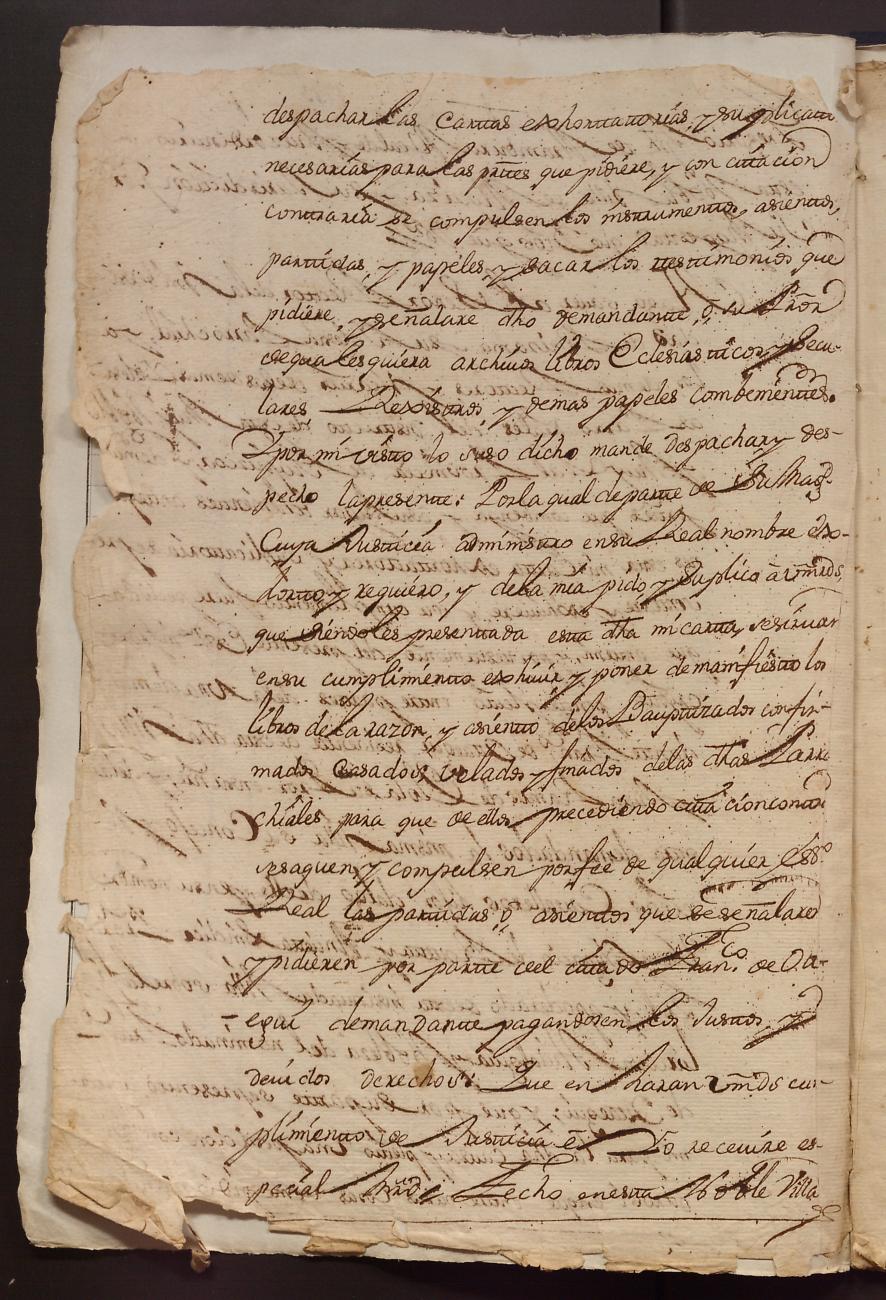 despachar las Cartas exhortatorias, y suplicatt
necesarias para las prttes que pidiere, y con citacion
contraria se compulsen los instrumentos, asientos,
partidas, y papeles y sacar los testimonios que
pidiere, y señalare dho demandante, o su Pror
de qualesquiera archivos libros Eclesiasticos, y Secu-
lares Rexistros, y demas papeles combenientes.
Y por mi visto lo suso dicho mande despachar y des-
pecho la presente: Por la qual de parte de Su Magd
Cuya Justicia administro en su Real nombre exo-
dorto y requiero, y de la mia pido y suplico a vmrds,
que siendoles presentada esta dha mi carta, se sirvan
en su cumplimiento exhivir y poner de manifiesto los
libros de la razon, y asiento de los Bauptizados confir-
mados Casados, velados y finados de las dhas Parro
chiales para que de ellos precediendo cittacion contra
se saquen y compulsen por fee de qualquier Essno
Real las partidas o asientos que se señalaren
y pidieren por parte del citado Franco de Ota-
egui demandante pagandosen los Justos, y
devidos derechos: Que en haran vmds cum-
plimiento de Justicia e Yo receuire es-
pecial mrd: Fecho en esta Noble Villa
de